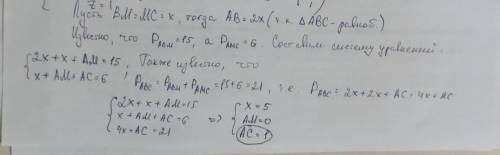 { z = 1
Пусть BM=MC=x, тогда AB=2x (т.к. △ABC-равноб.)
Известно, что P_ABM=15, а P_AMC=6. Составим систему уравнений.
{ 2x+x+AM=15, Также известно, что
x+AM+AC=6 , P_ABC = P_ABM+P_AMC=15+6=21, т.е. P_ABC=2x+2x+AC=4x+AC
{ 2x+x+AM=15 { x=5
x+AM+AC=6 => AM=0
4x+AC=21 AC=1